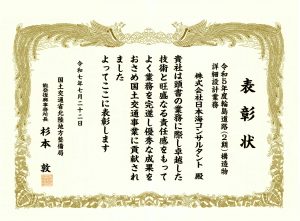 表彰状
令和5年度輪島道路(2期)構造物
詳細設計業務
株式会社日本海コンサルタント 殿
貴社は頭書の業務に際し卓越した
技術と旺盛なる責任感をもって
よく業務を完遂し優秀な成果を
おさめ国土交通事業に貢献され
ました
よってここに表彰します
令和七年七月二十二日
国土交通省北陸地方整備局
能登復興事務所長
杉本 敦